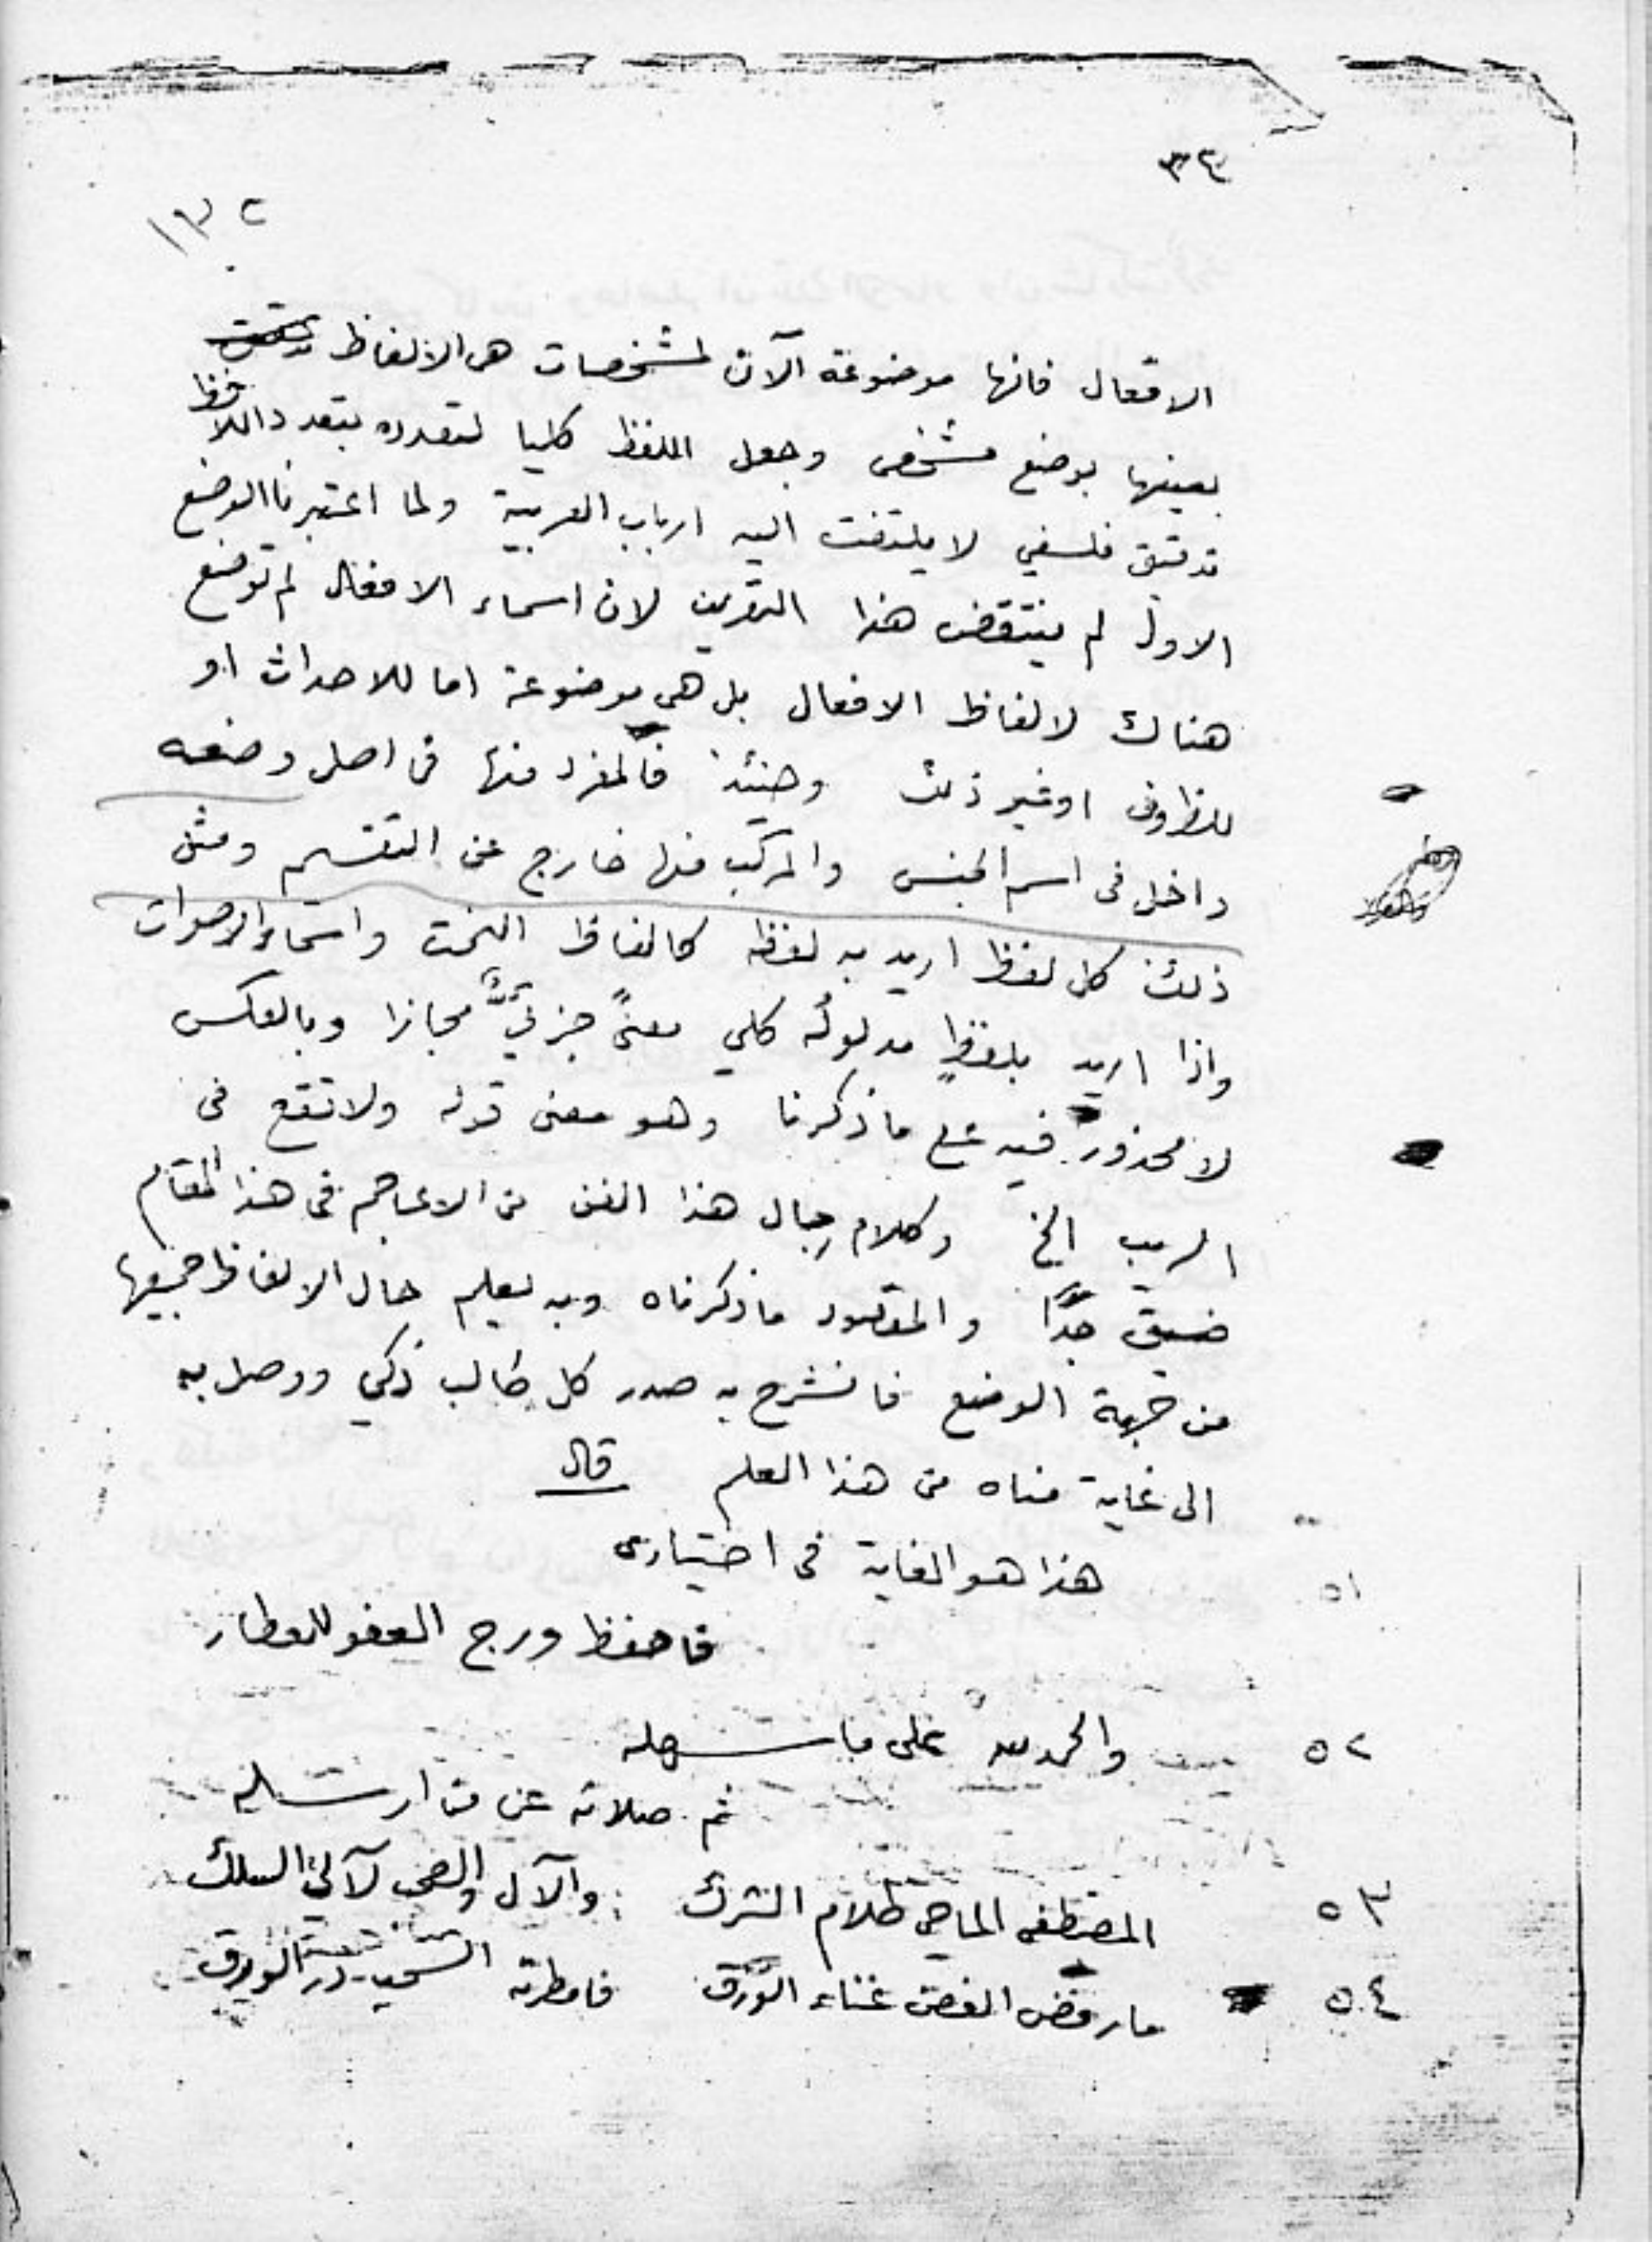 ٣٤
١٣٢
الافعال فانها موضوعة الآن لمشخصات هى الالفاظ
بعينها بوضع مشخص وجعل اللفظ كليا لتعدده بتعدد اللافظ
تدقيق فلسفي لا يلتفت اليه ارباب العربية ولما اعتبرنا الوضع
الاول لم ينتقض هذا التعريف لان اسماء الافعال لم توضع
هناك لالفاظ الافعال بل هي موضوعة اما للاحداث او
للظروف او غير ذلك وحينئذ فالمفرد منها فى اصل وضعه
داخل فى اسم الجنس والمركب منها خارج عن التقسيم ومثل
ذلك كل لفظ اريد به لفظه كالفاظ النحت واسماء الاصوات
واذا اريد بلفظٍ مدلولُه كلي معنىً جزئيٌّ مجازا وبالعكس
لا محذور فيه على ما ذكرنا وهو معنى قوله ولا تقع فى
الريب الخ وكلام رجال هذا الفن من الاعاجم فى هذا المقام
ضيق جدًا والمقصود ما ذكرناه وبه يعلم حال الالفاظ جميعها
من جهة الوضع فانشرح به صدر كل طالب ذكي ووصل به
الى غاية مناه من هذا العلم قال
٥١ هذا هو الغاية فى اختيارى
فاحفظ ورج العفو للعطار
٥٢ والحمد لله على ما سهله
ثم صلاته على من ارسله
٥٣ المصطفى الماحى ظلام الشرك والآل والصحب لآلئ السلك
٥٤ ما رقص الغصن غناء الوُرْق فامطرته السحب در الودق